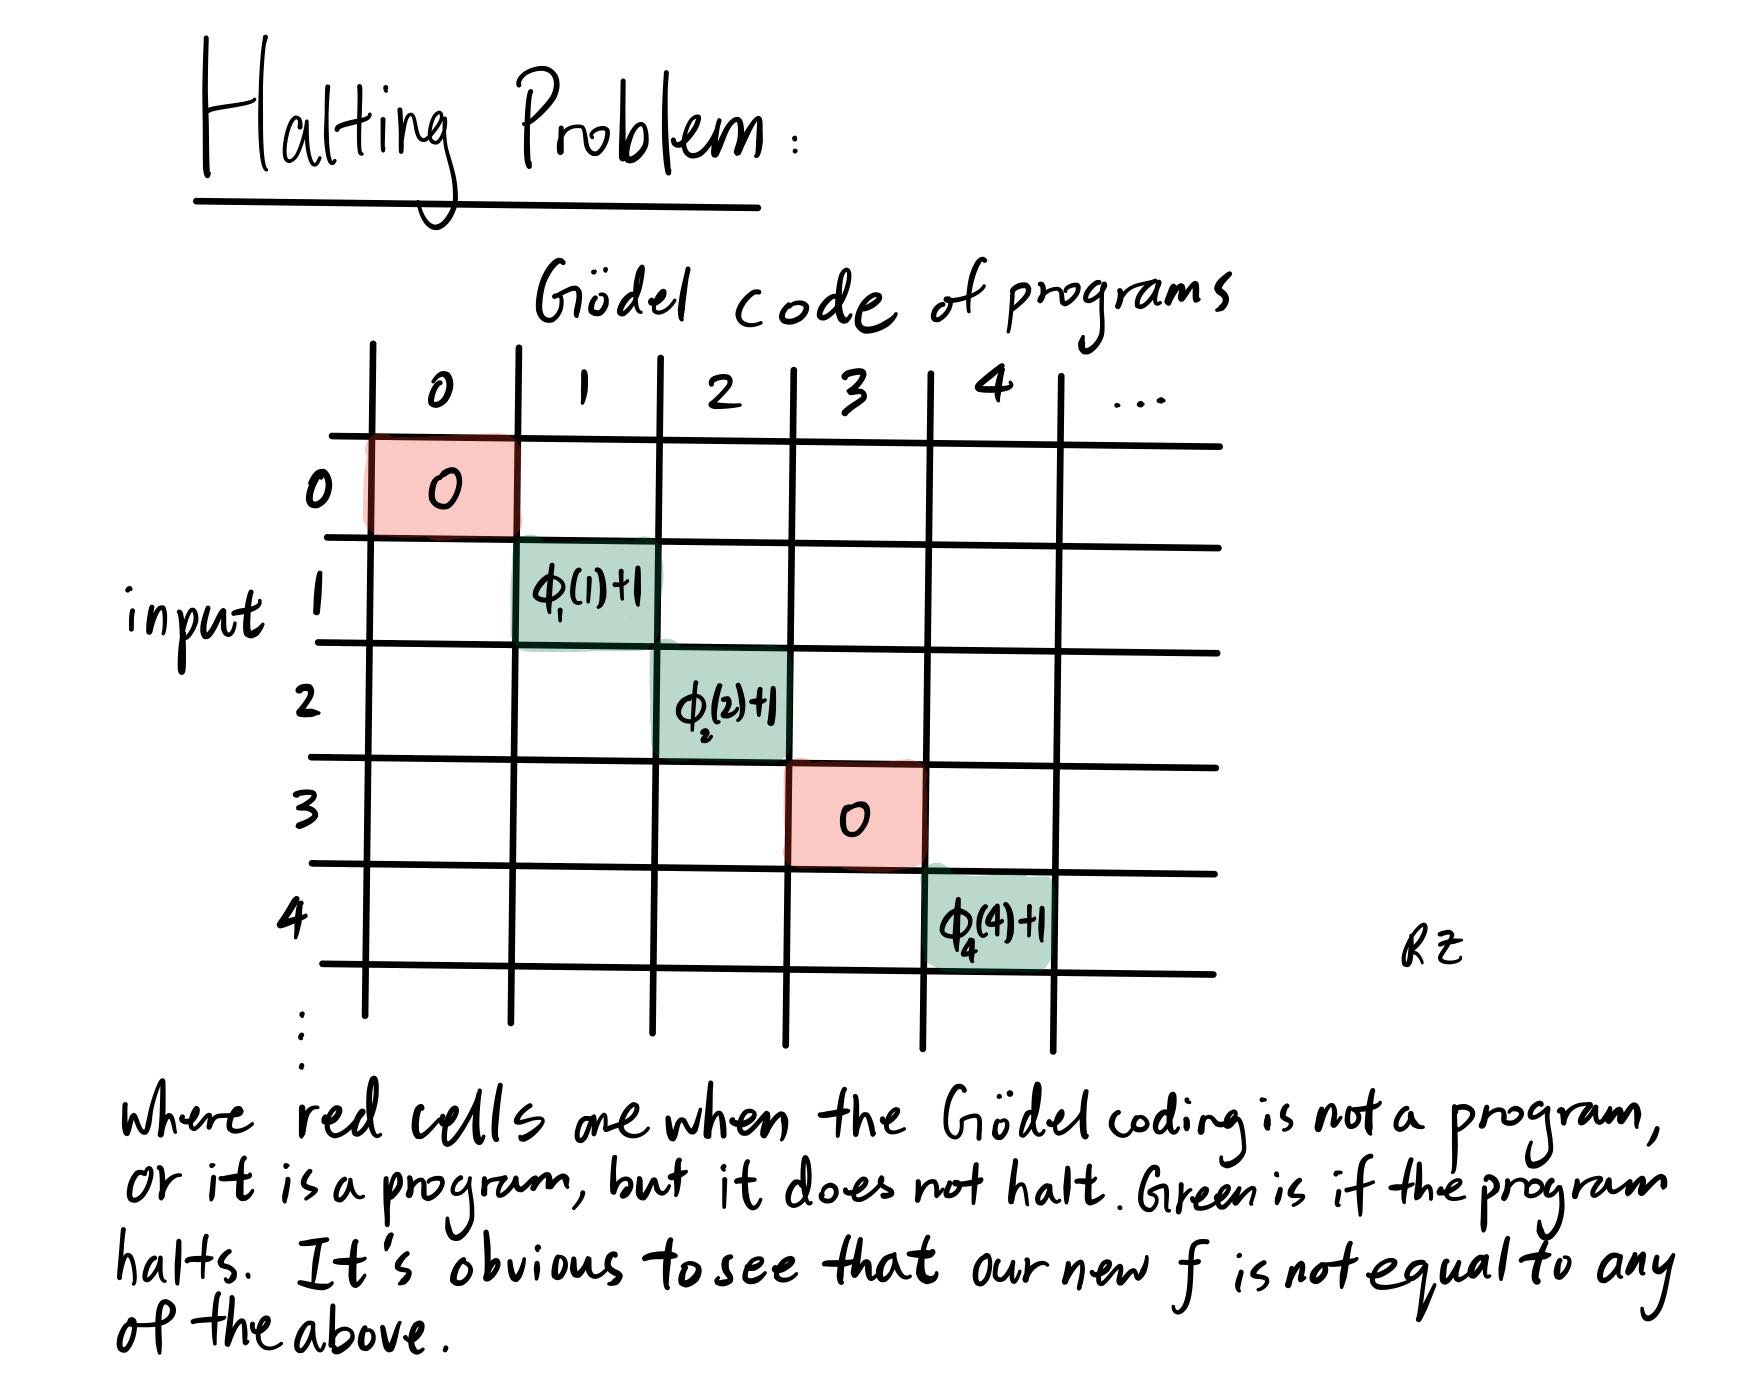 Halting Problem:
Gödel code of programs
0 1 2 3 4 ...
0 0
input
1 ϕ₁(1)+1
2 ϕ₂(2)+1
3 0
4 ϕ₄(4)+1
RZ
⋮
where red cells are when the Gödel coding is not a program,
or it is a program, but it does not halt. Green is if the program
halts. It's obvious to see that our new f is not equal to any
of the above.